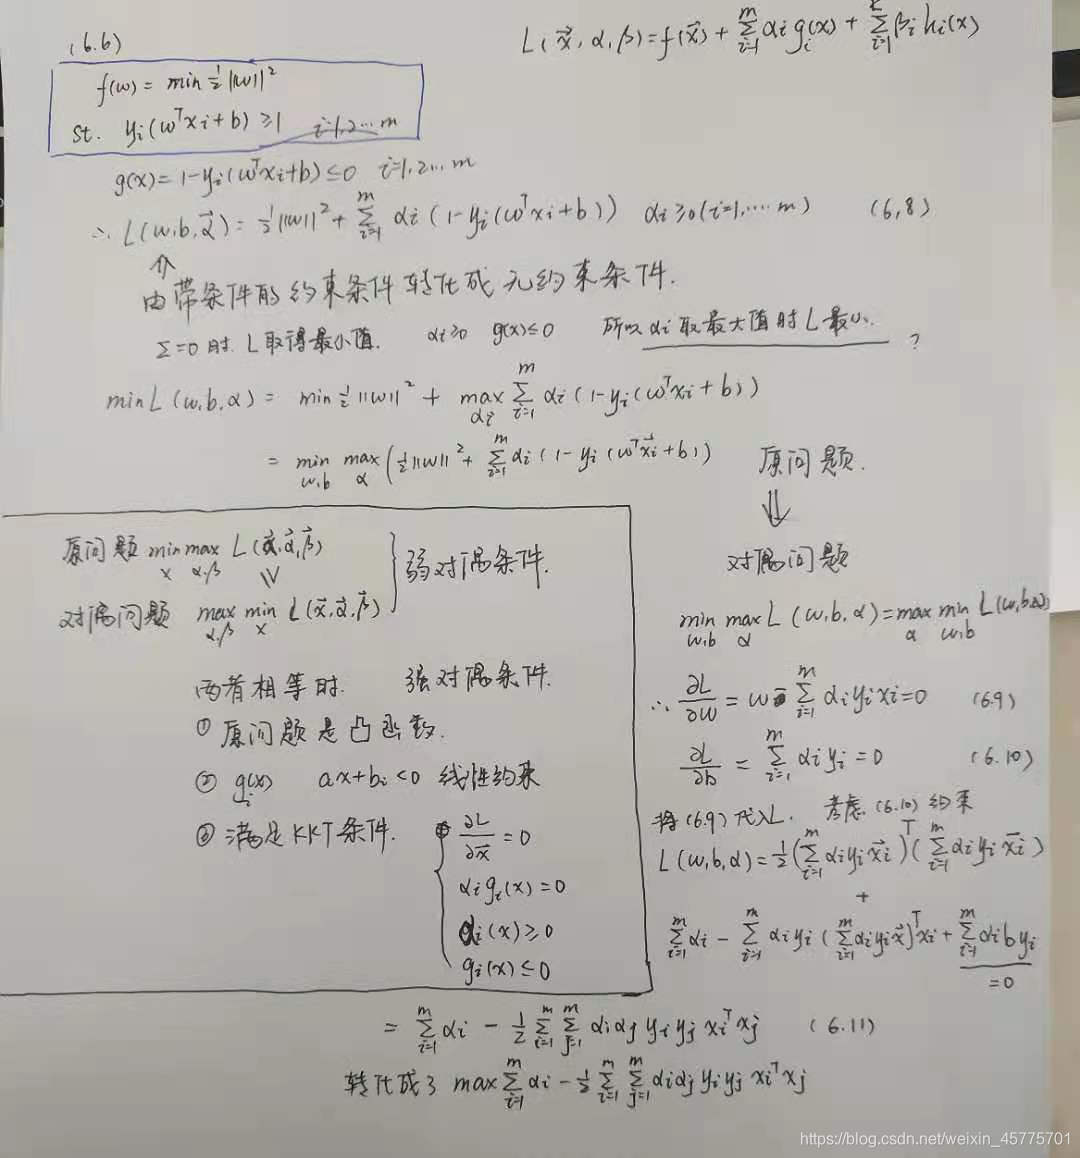 (6.6)
L(x⃗, α, β) = f(x⃗) + Σ_{i=1}^{m} αi gi(x) + Σ_{i=1}^{k} βi hi(x)
f(w) = min ½||w||²
St. yi(wᵀxi + b) ≥ 1 i=1,2...m
g(x) = 1 - yi(wᵀxi+b) ≤ 0 i=1,2...m
∴ L(w,b,α⃗) = ½||w||² + Σ_{i=1}^{m} αi (1 - yi(wᵀxi+b)) αi ≥ 0 (i=1,....m) (6,8)
⇑
由带条件的约束条件转化成无约束条件.
Σ=0时. L取得最小值. αi≥0 g(x)≤0 所以αi取最大值时L最小. ?
min L(w,b,α) = min ½||w||² + max_{αi} Σ_{i=1}^{m} αi (1-yi(wᵀxi+b))
= min_{w,b} max_{α} (½||w||² + Σ_{i=1}^{m} αi (1 - yi(wᵀx⃗i+b)) 原问题.
⇓
对偶问题
原问题 min_{x} max_{α,β} L(x⃗,α⃗,β⃗)
≥
弱对偶条件.
对偶问题 max_{α,β} min_{x} L(x⃗,α⃗,β⃗)
两者相等时. 强对偶条件.
① 原问题是凸函数.
② gi(x) ax+bi<0 线性约束
③ 满足KKT条件.
∂L/∂x⃗ = 0
αi gi(x) = 0
αi(x) ≥ 0
gi(x) ≤ 0
min_{w,b} max_{α} L(w,b,α) = max_{α} min_{w,b} L(w,b,α)
∴ ∂L/∂w = w - Σ_{i=1}^{m} αi yi xi = 0 (6.9)
∂L/∂b = Σ_{i=1}^{m} αi yi = 0 (6.10)
将(6.9)代入L. 考虑(6.10)约束
L(w,b,α) = ½(Σ_{i=1}^{m} αi yi x⃗i)ᵀ(Σ_{i=1}^{m} αi yi x⃗i)
+
Σ_{i=1}^{m} αi - Σ_{i=1}^{m} αi yi (Σ_{i=1}^{m} αi yi x⃗)ᵀ xi + Σ_{i=1}^{m} αi b yi
=0
= Σ_{i=1}^{m} αi - ½ Σ_{i=1}^{m} Σ_{j=1}^{m} αi αj yi yj xiᵀ xj (6.11)
转化成了 max Σ_{i=1}^{m} αi - ½ Σ_{i=1}^{m} Σ_{j=1}^{m} αi αj yi yj xiᵀ xj
https://blog.csdn.net/weixin_45775701